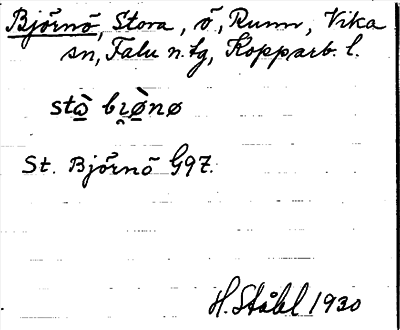 Björnö, Stora, ö, Runn, Vika
sn, Falu n. tg, Kopparb. l.
stꙍ̀ bi̯ø̀nø
St. Björnö G97.
H. Ståhl 1930